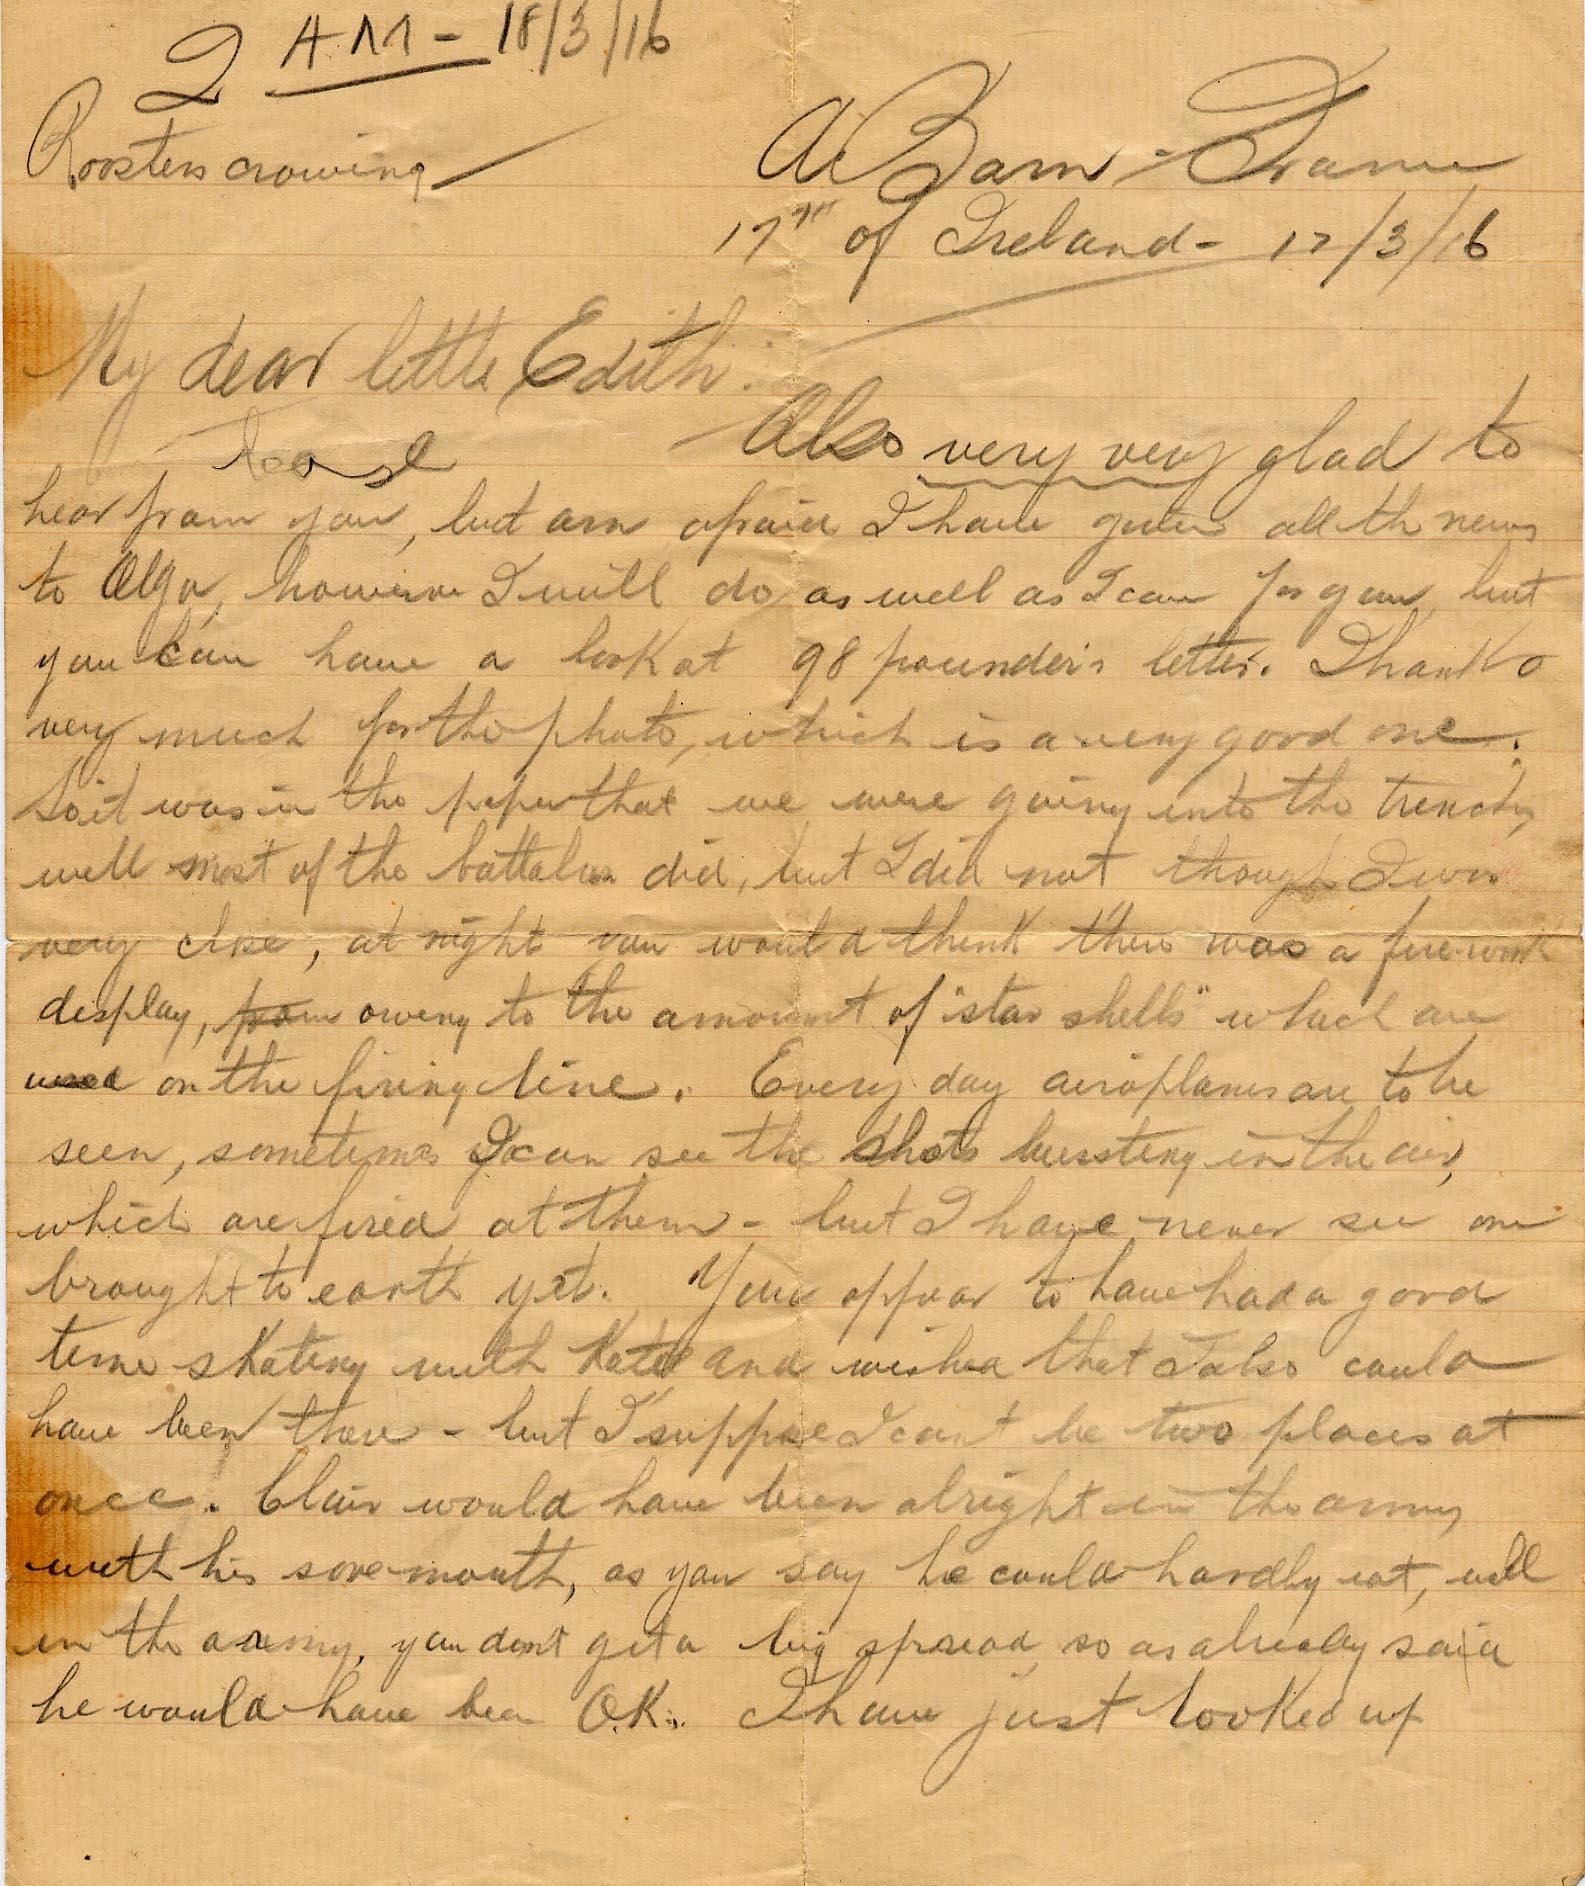 2 AM - 18/3/16
Roosters crowing
A Barn - France
17TH of Ireland - 17/3/16
My dear little Edith:
Also very very glad to
hear from you, but am afraid I have given all th news
to Olga, however I will do as well as I can for you, but
you can have a look at 98 pounder's letter. Thanks
very much for the photo, which is a very good one.
So it was in the paper that we were going into the trenches,
well most of the battalion did, but I did not though I was
very close, at night you would think there was a fire-work
display, from owing to the amount of "star shells" which are
used on the firing line. Every day aeroplanes are to be
seen, sometimes I can see the shots bursting in the air,
which are fired at them - but I have never see one
brought to earth yet. You appear to have had a good
time skating with Kate and wished that I also could
have been there - but I suppose I can't be two places at
once. Clair would have been alright in the army
with his sore mouth, as you say he could hardly eat, well
in the army, you don't get a big spread, so as already said
he would have been O.K. I have just looked up